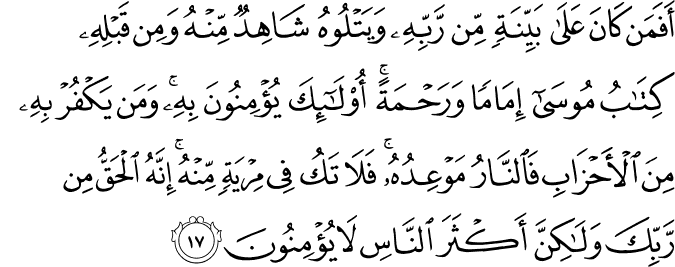 أَفَمَن كَانَ عَلَىٰ بَيِّنَةٍ مِّن رَّبِّهِۦ وَيَتْلُوهُ شَاهِدٌ مِّنْهُ وَمِن قَبْلِهِۦ
كِتَٰبُ مُوسَىٰٓ إِمَامًا وَرَحْمَةً ۚ أُو۟لَٰٓئِكَ يُؤْمِنُونَ بِهِۦ ۚ وَمَن يَكْفُرْ بِهِۦ
مِنَ ٱلْأَحْزَابِ فَٱلنَّارُ مَوْعِدُهُۥ ۚ فَلَا تَكُ فِى مِرْيَةٍ مِّنْهُ ۚ إِنَّهُ ٱلْحَقُّ مِن
رَّبِّكَ وَلَٰكِنَّ أَكْثَرَ ٱلنَّاسِ لَا يُؤْمِنُونَ ١٧